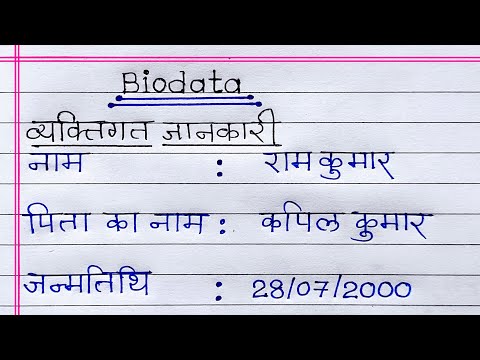 Biodata
व्यक्तिगत जानकारी
नाम : राम कुमार
पिता का नाम : कपिल कुमार
जन्मतिथि : 28/07/2000